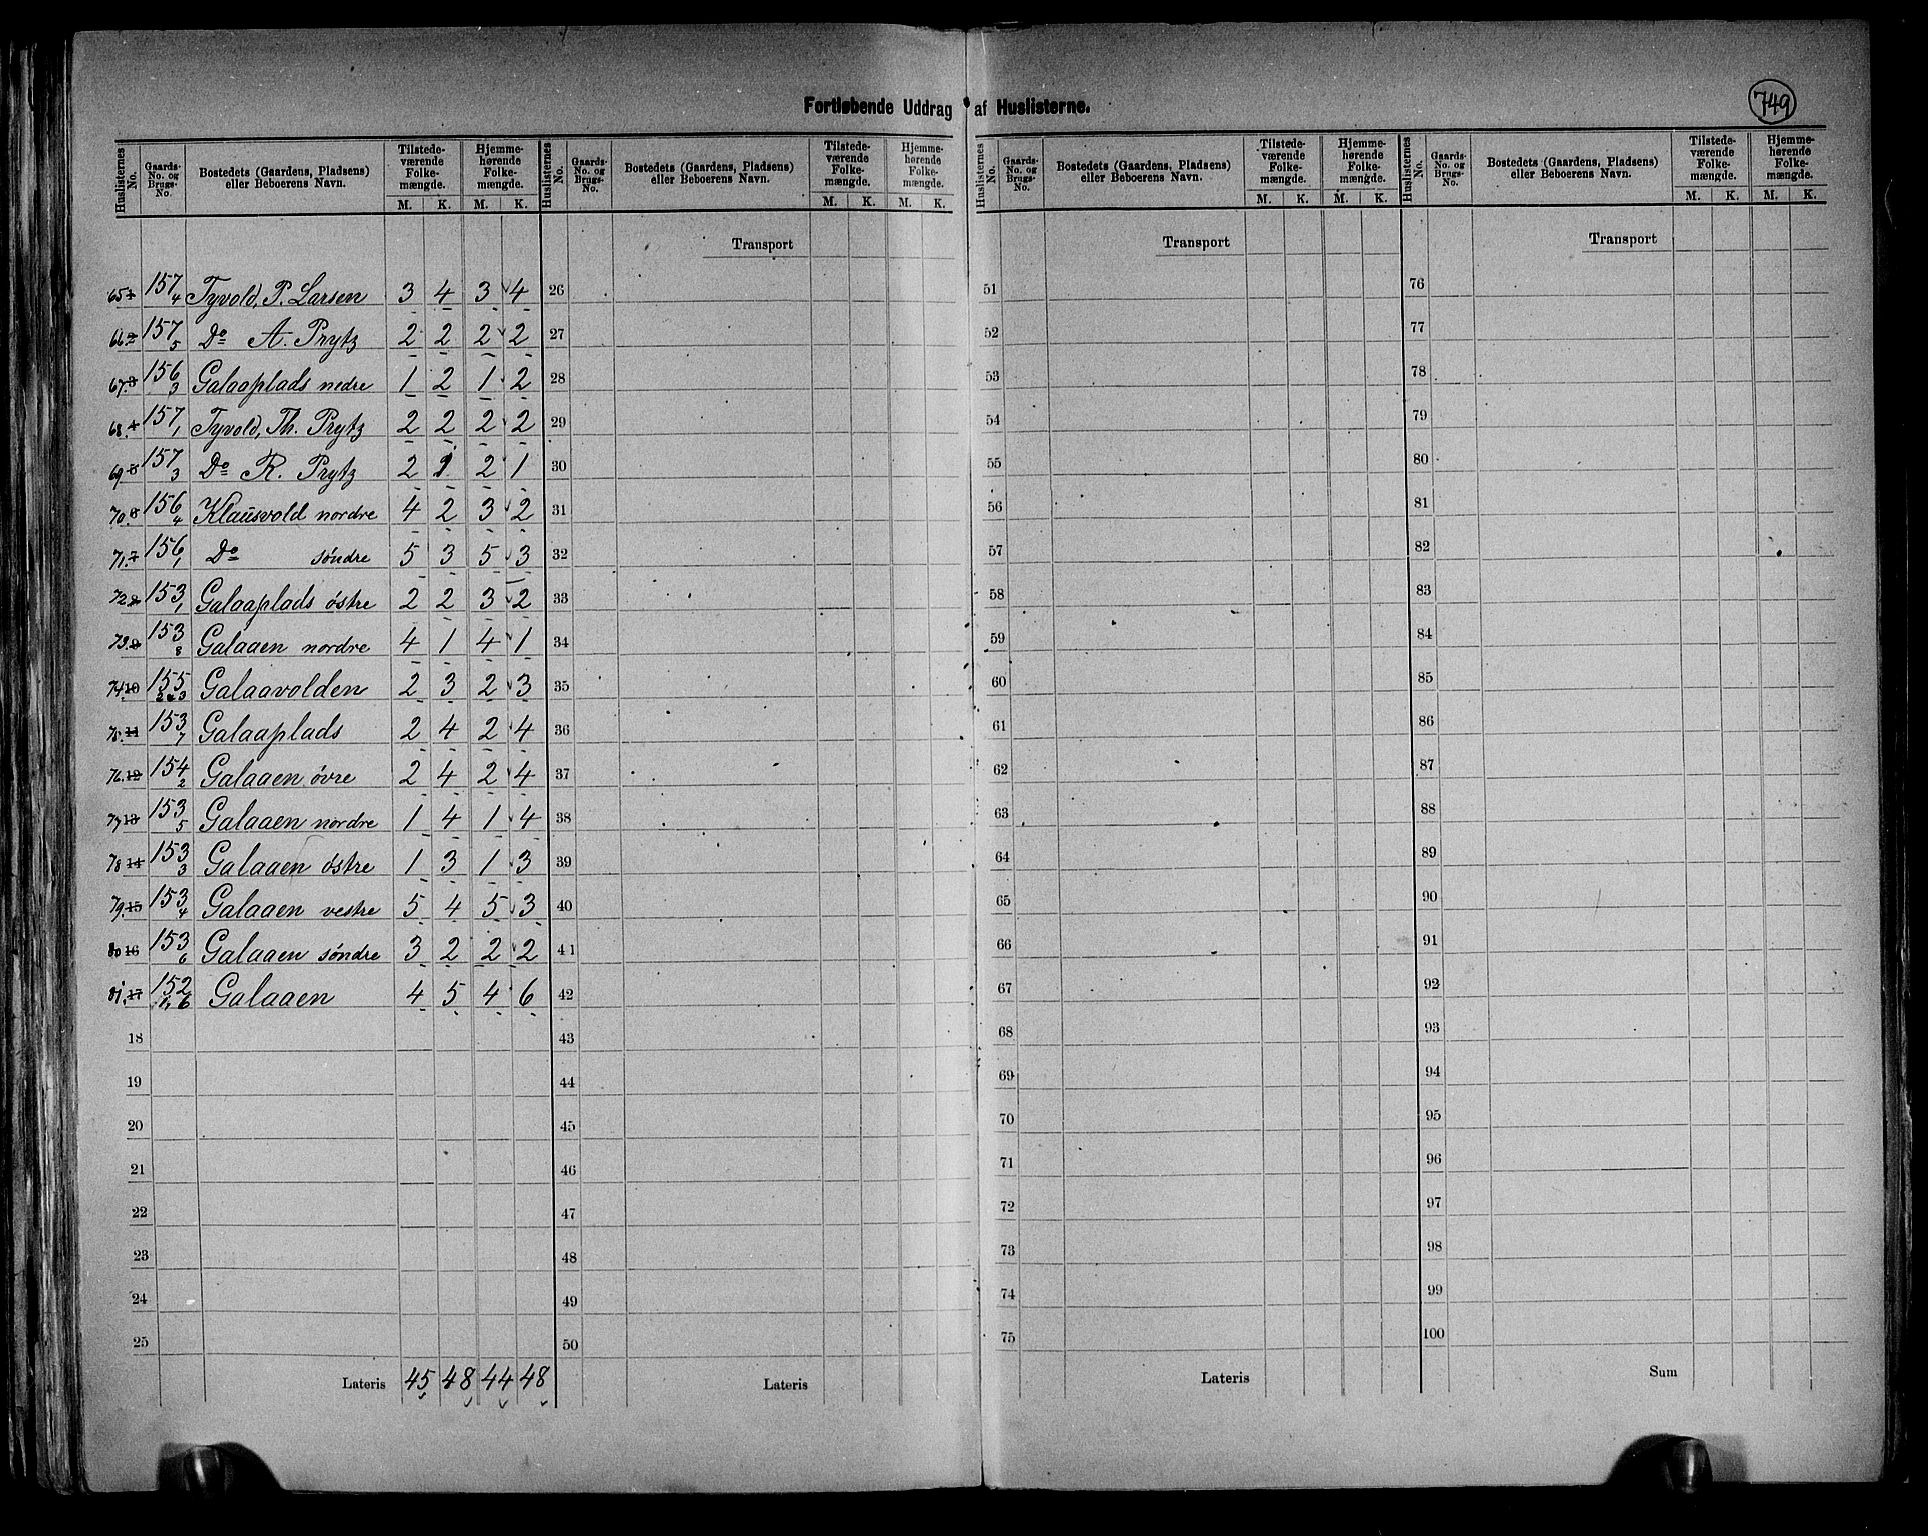 749
Fortløbende Uddrag af Huslisterne.
Huslisternes No. | Gaards-No. og Brugs-No. | Bostedets (Gaardens, Pladsens) eller Beboerens Navn. | Tilstedeværende Folkemængde. M. K. | Hjemmehørende Folkemængde. M. K.
Huslisternes No. | Gaards-No. og Brugs-No. | Bostedets (Gaardens, Pladsens) eller Beboerens Navn. | Tilstedeværende Folkemængde. M. K. | Hjemmehørende Folkemængde. M. K.
Huslisternes No. | Gaards-No. og Brugs-No. | Bostedets (Gaardens, Pladsens) eller Beboerens Navn. | Tilstedeværende Folkemængde. M. K. | Hjemmehørende Folkemængde. M. K.
Huslisternes No. | Gaards-No. og Brugs-No. | Bostedets (Gaardens, Pladsens) eller Beboerens Navn. | Tilstedeværende Folkemængde. M. K. | Hjemmehørende Folkemængde. M. K.
Transport Transport Transport
65. 1 157/4 Tyvold, P. Larsen 3 4 3 4 26 51 76
66. 2 157/5 Do A. Prytz 2 2 2 2 27 52 77
67. 3 156/3 Galaaplads nedre 1 2 1 2 28 53 78
68. 4 157/1 Tyvold, Th. Prytz 2 2 2 2 29 54 79
69. 5 157/3 Do R. Prytz 2 1 2 1 30 55 80
70. 6 156/4 Klausvold nordre 4 2 3 2 31 56 81
71. 7 156/1 Do søndre 5 3 5 3 32 57 82
72. 8 153/1 Galaaplads østre 2 2 3 2 33 58 83
73. 9 153/8 Galaaen nordre 4 1 4 1 34 59 84
74. 10 155/2 & 3 Galaavolden 2 3 2 3 35 60 85
75. 11 153/7 Galaaplads 2 4 2 4 36 61 86
76. 12 154/2 Galaaen øvre 2 4 2 4 37 62 87
77 13 153/5 Galaaen nordre 1 4 1 4 38 63 88
78 14 153/3 Galaaen østre 1 3 1 3 39 64 89
79. 15 153/4 Galaaen vestre 5 4 5 3 40 65 90
80 16 153/6 Galaaen søndre 3 2 2 2 41 66 91
81. 17 152 6 Galaaen 4 5 4 6 42 67 92
18 43 68 93
19 44 69 94
20 45 70 95
21 46 71 96
22 47 72 97
23 48 73 98
24 49 74 99
25 50 75 100
Lateris 45 48 44 48 Lateris Lateris Sum